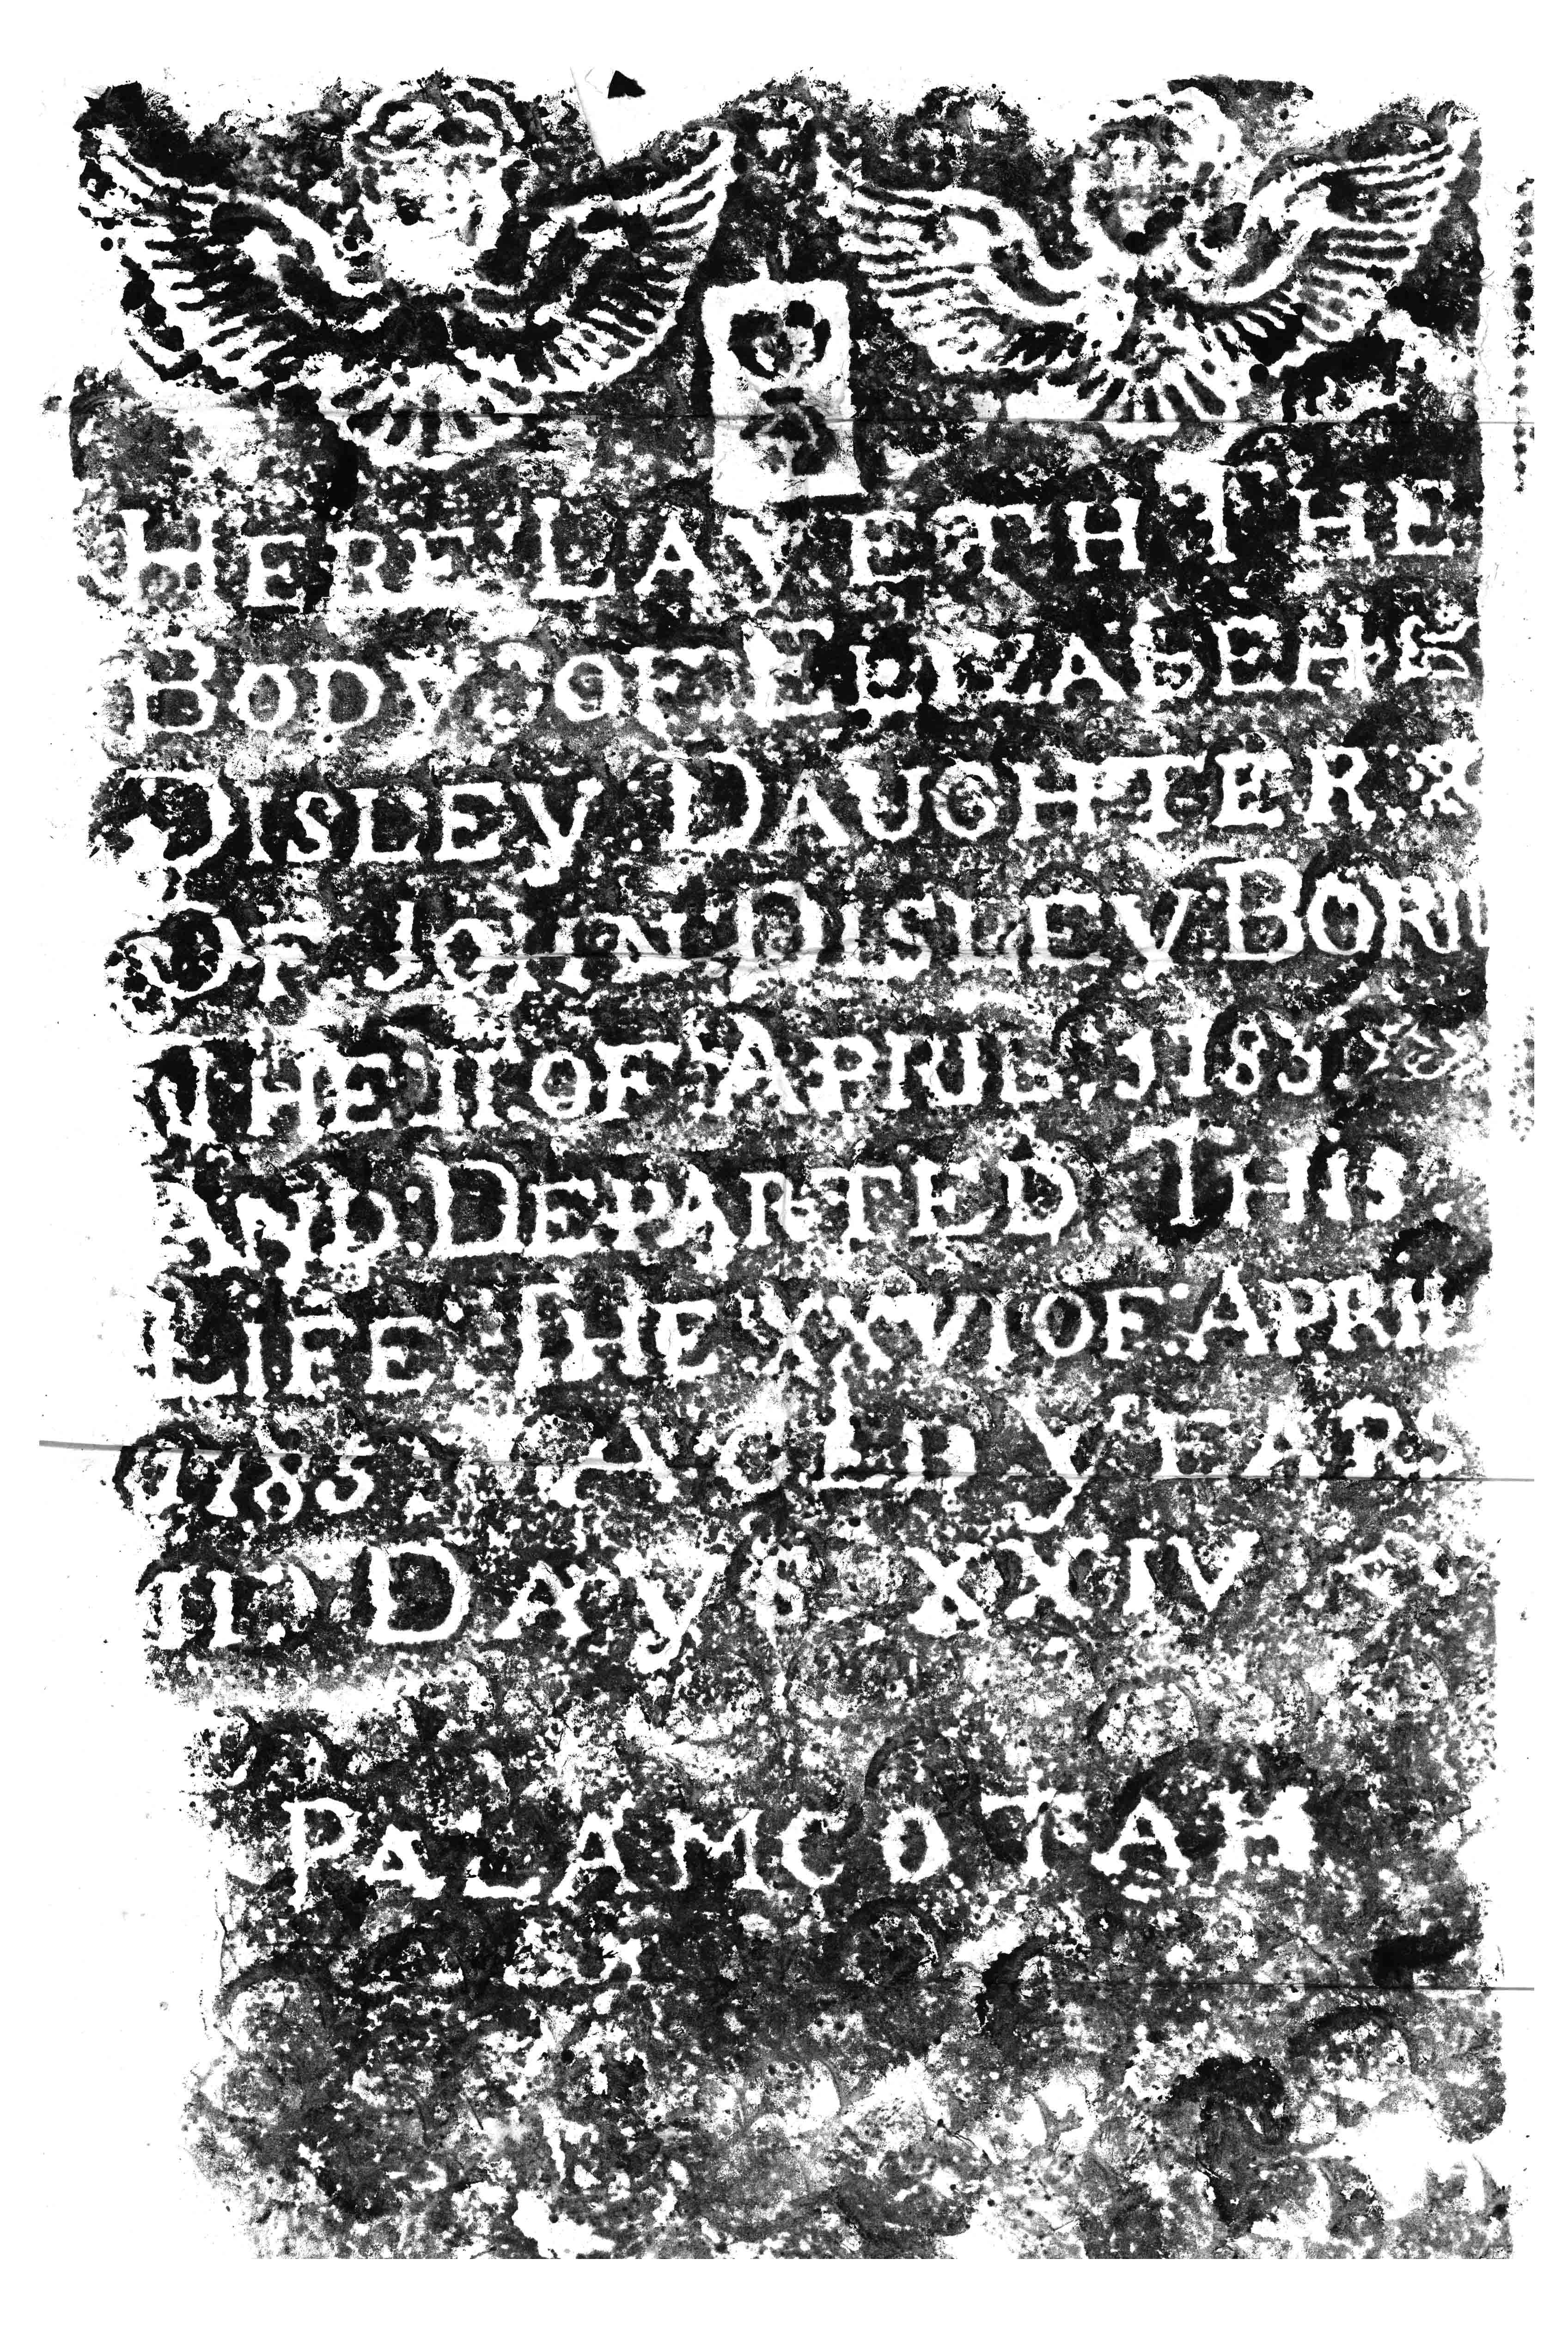 HERE LAYETH THE
BODY OF ELIZABEH
DISLEY DAUGHTER
OF JOHN DISLEY BORN
THE II OF APRIL 1783
AND DEPARTED THIS
LIFE THE XXVI OF APRIL
1785 OLD YEARS
II DAYS XXIV
PALAMCOTAH